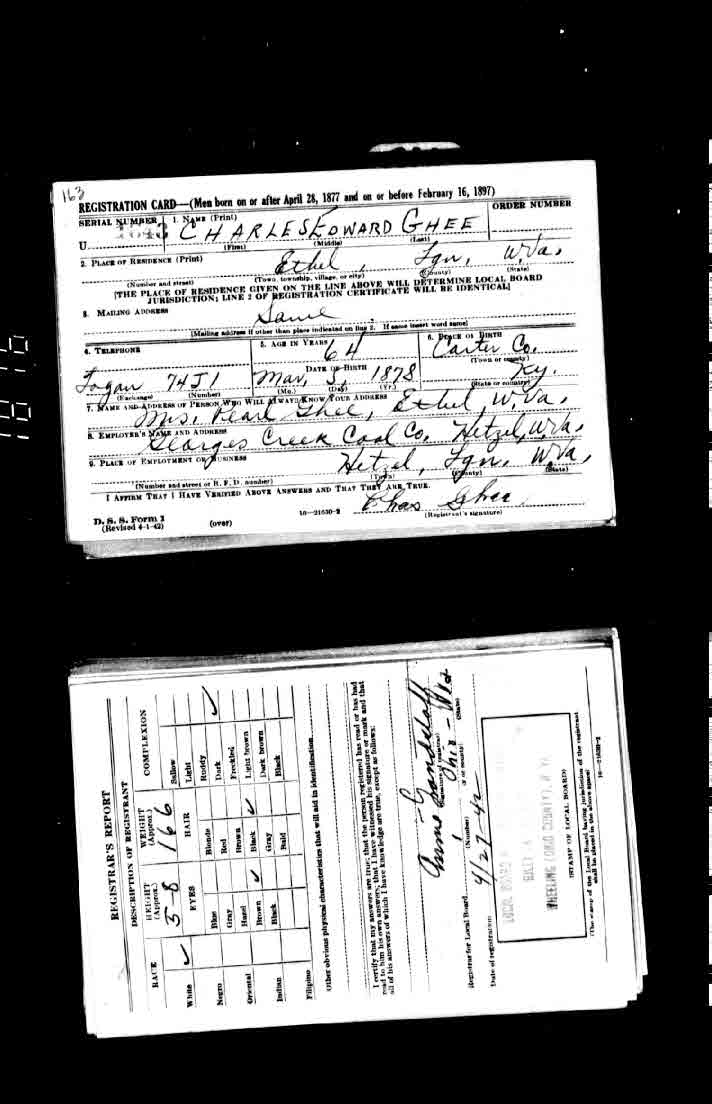 163
REGISTRATION CARD—(Men born on or after April 28, 1877 and on or before February 16, 1897)
SERIAL NUMBER 1. NAME (Print) ORDER NUMBER
1643 CHARLES EDWARD GHEE
U (First) (Middle) (Last)
2. PLACE OF RESIDENCE (Print)
Ethel, Lgn, W.Va.
(Number and street) (Town, township, village, or city) (County) (State)
[THE PLACE OF RESIDENCE GIVEN ON THE LINE ABOVE WILL DETERMINE LOCAL BOARD
JURISDICTION; LINE 2 OF REGISTRATION CERTIFICATE WILL BE IDENTICAL]
3. MAILING ADDRESS
Same
[Mailing address if other than place indicated on line 2. If same insert word same]
4. TELEPHONE 5. AGE IN YEARS 6. PLACE OF BIRTH
64 Carter Co.
DATE OF BIRTH (Town or county)
Logan 74J1 Mar, 5, 1878 Ky.
(Exchange) (Number) (Mo.) (Day) (Yr.) (State or country)
7. NAME AND ADDRESS OF PERSON WHO WILL ALWAYS KNOW YOUR ADDRESS
Mrs. Pearl Ghee, Ethel, W.Va.
8. EMPLOYER'S NAME AND ADDRESS
Georges Creek Coal Co. Hetzel, W.Va.
9. PLACE OF EMPLOYMENT OR BUSINESS
Hetzel, Lgn. W.Va.
(Number and street or R. F. D. number) (Town) (County) (State)
I AFFIRM THAT I HAVE VERIFIED ABOVE ANSWERS AND THAT THEY ARE TRUE.
Chas Ghee
D. S. S. Form 1 (Revised 4-1-42) (over) 16—21630-2 (Registrant's signature)
REGISTRAR'S REPORT
DESCRIPTION OF REGISTRANT
RACE HEIGHT (Approx.) WEIGHT (Approx.) COMPLEXION
5-8 166
White ✓ EYES HAIR Sallow
Light
Negro Blue Blonde Ruddy
Gray Red Dark ✓
Oriental Hazel Brown Freckled
Brown ✓ Black ✓ Light brown
Indian Black Gray Dark brown
Filipino Bald Black
Other obvious physical characteristics that will aid in identification
I certify that my answers are true; that the person registered has read or has had
read to him his own answers; that I have witnessed his signature or mark and that
all of his answers of which I have knowledge are true, except as follows:
(Signature of registrar)
Registrar for Local Board
(Number) (City or county) (State)
Date of registration 4/27-42
LOCAL BOARD
(STAMP OF LOCAL BOARD)
(The stamp of the Local Board having jurisdiction of the registrant
shall be placed in the above space)
16—21630-2